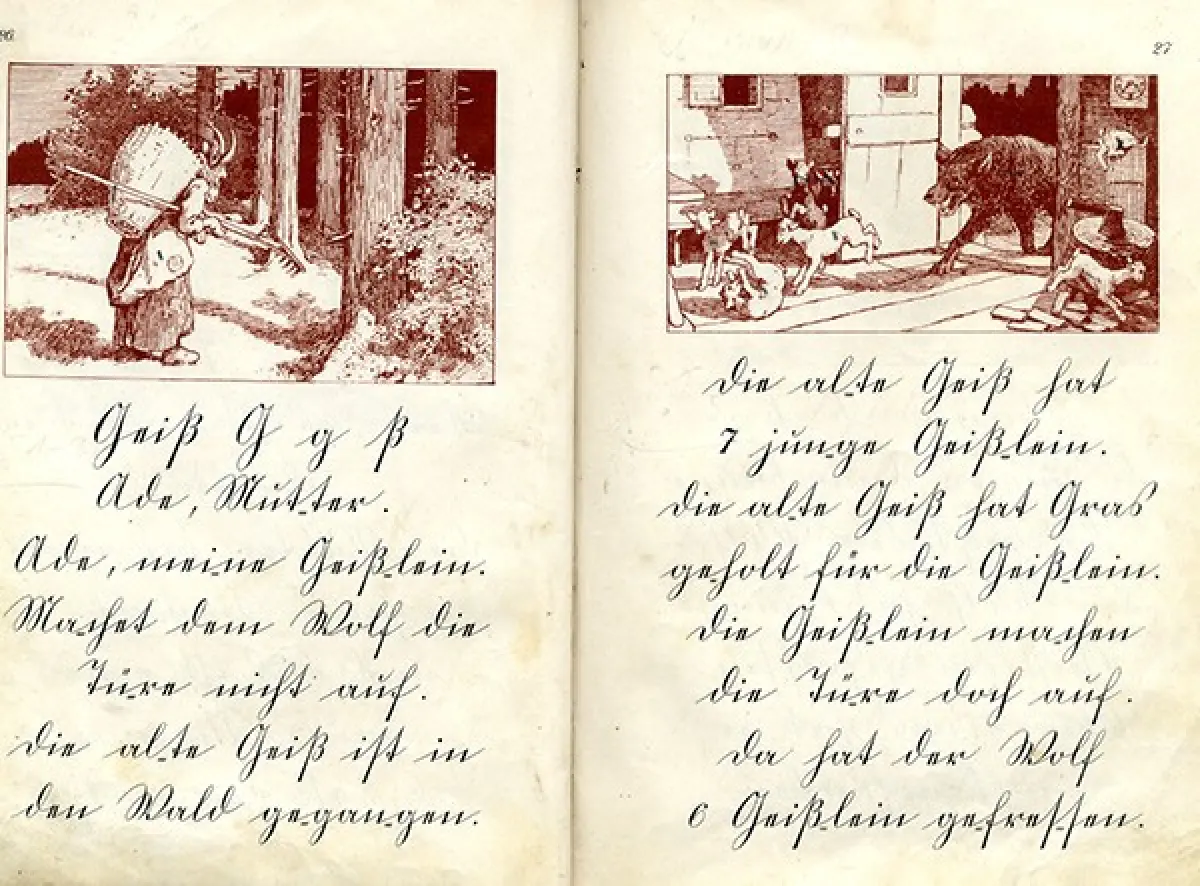 26
Geiß G g ß
Ade, Mut-ter.
Ade, meine Geiß-lein.
Ma-chet dem Wolf die
Tü-re nicht auf.
Die al-te Geiß ist in
den Wald ge-gan-gen.
27
Die al-te Geiß hat
7 jun-ge Geiß-lein.
Die al-te Geiß hat Gras
ge-holt für die Geiß-lein.
Die Geiß-lein ma-chen
die Tü-re doch auf.
Da hat der Wolf
6 Geiß-lein ge-fres-sen.